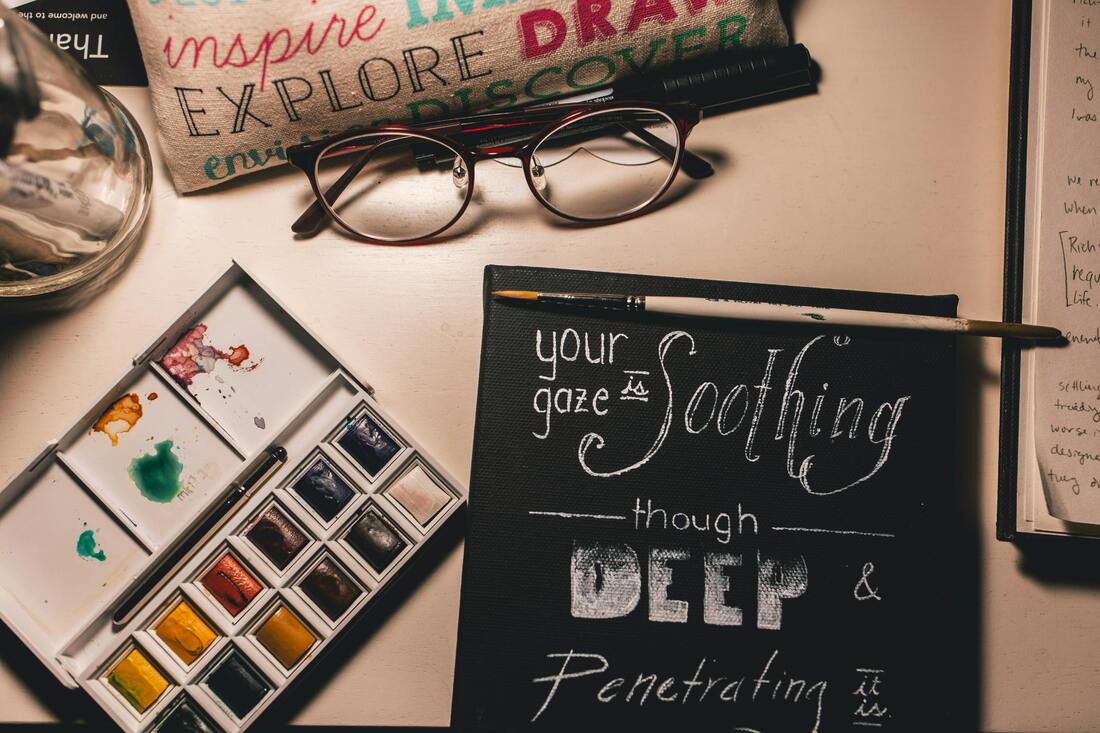 Than
and welcome to the
inspire
DRAW
EXPLORE
DISCOVER
your
gaze is Soothing
though
DEEP &
Penetrating it
is
it
the
my
I was
we re
when
[Rich
requ
life.
settling
worse i
designe
they a